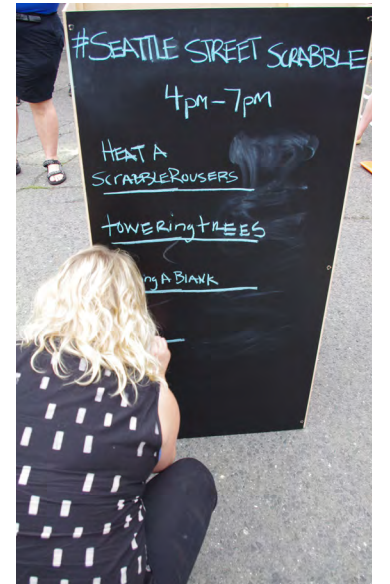 #SEATTLE STREET SCRABBLE
4pm-7pm
HEAT A
SCRABBLEROUSERS
toweringtrees
ngABlank